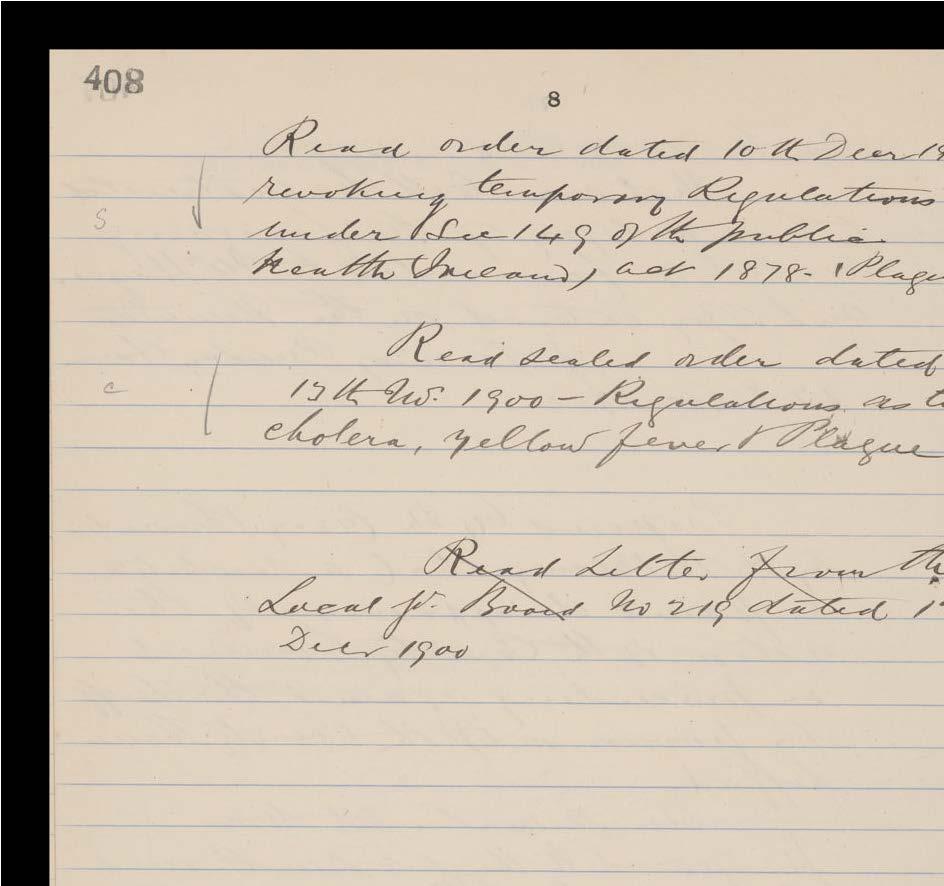 408
8
Read order dated 10th Decr 19
revoking temporary Regulations
under Sec 149 of the public
health (Ireland) act 1878- (Plagu
S
Read sealed order dated
Nov. 1900 - Regulations as to
c
cholera, yellow fever & Plague
Read Letter from the
Local Gt. Board No 219 dated
Decr 1900